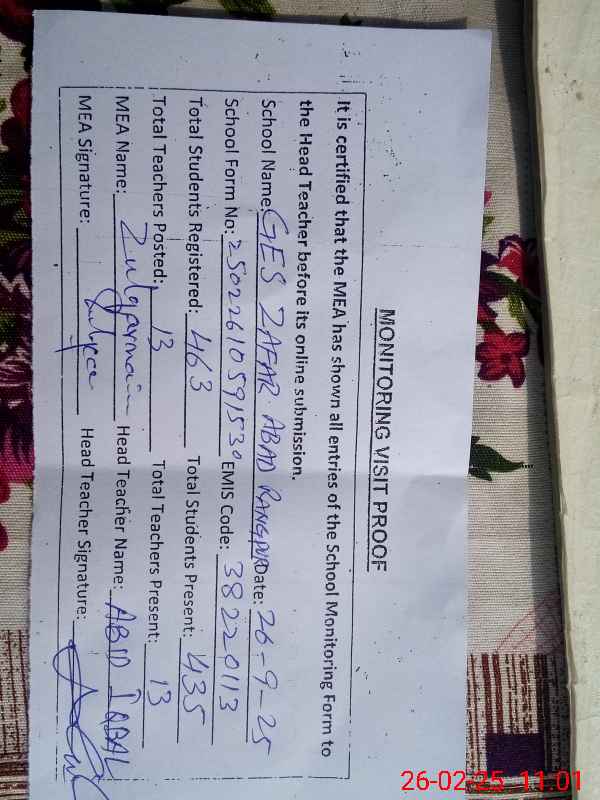 MONITORING VISIT PROOF
It is certified that the MEA has shown all entries of the School Monitoring Form to
the Head Teacher before its online submission.
School Name: GES ZAFAR ABAD RANGPUR Date: 26-9-25
School Form No: 25022610591530 EMIS Code: 38220113
Total Students Registered: 463 Total Students Present: 435
Total Teachers Posted: 13 Total Teachers Present: 13
MEA Name: Zulqarnain Head Teacher Name: ABID IQBAL
MEA Signature: Head Teacher Signature:
26-02-25 11:01